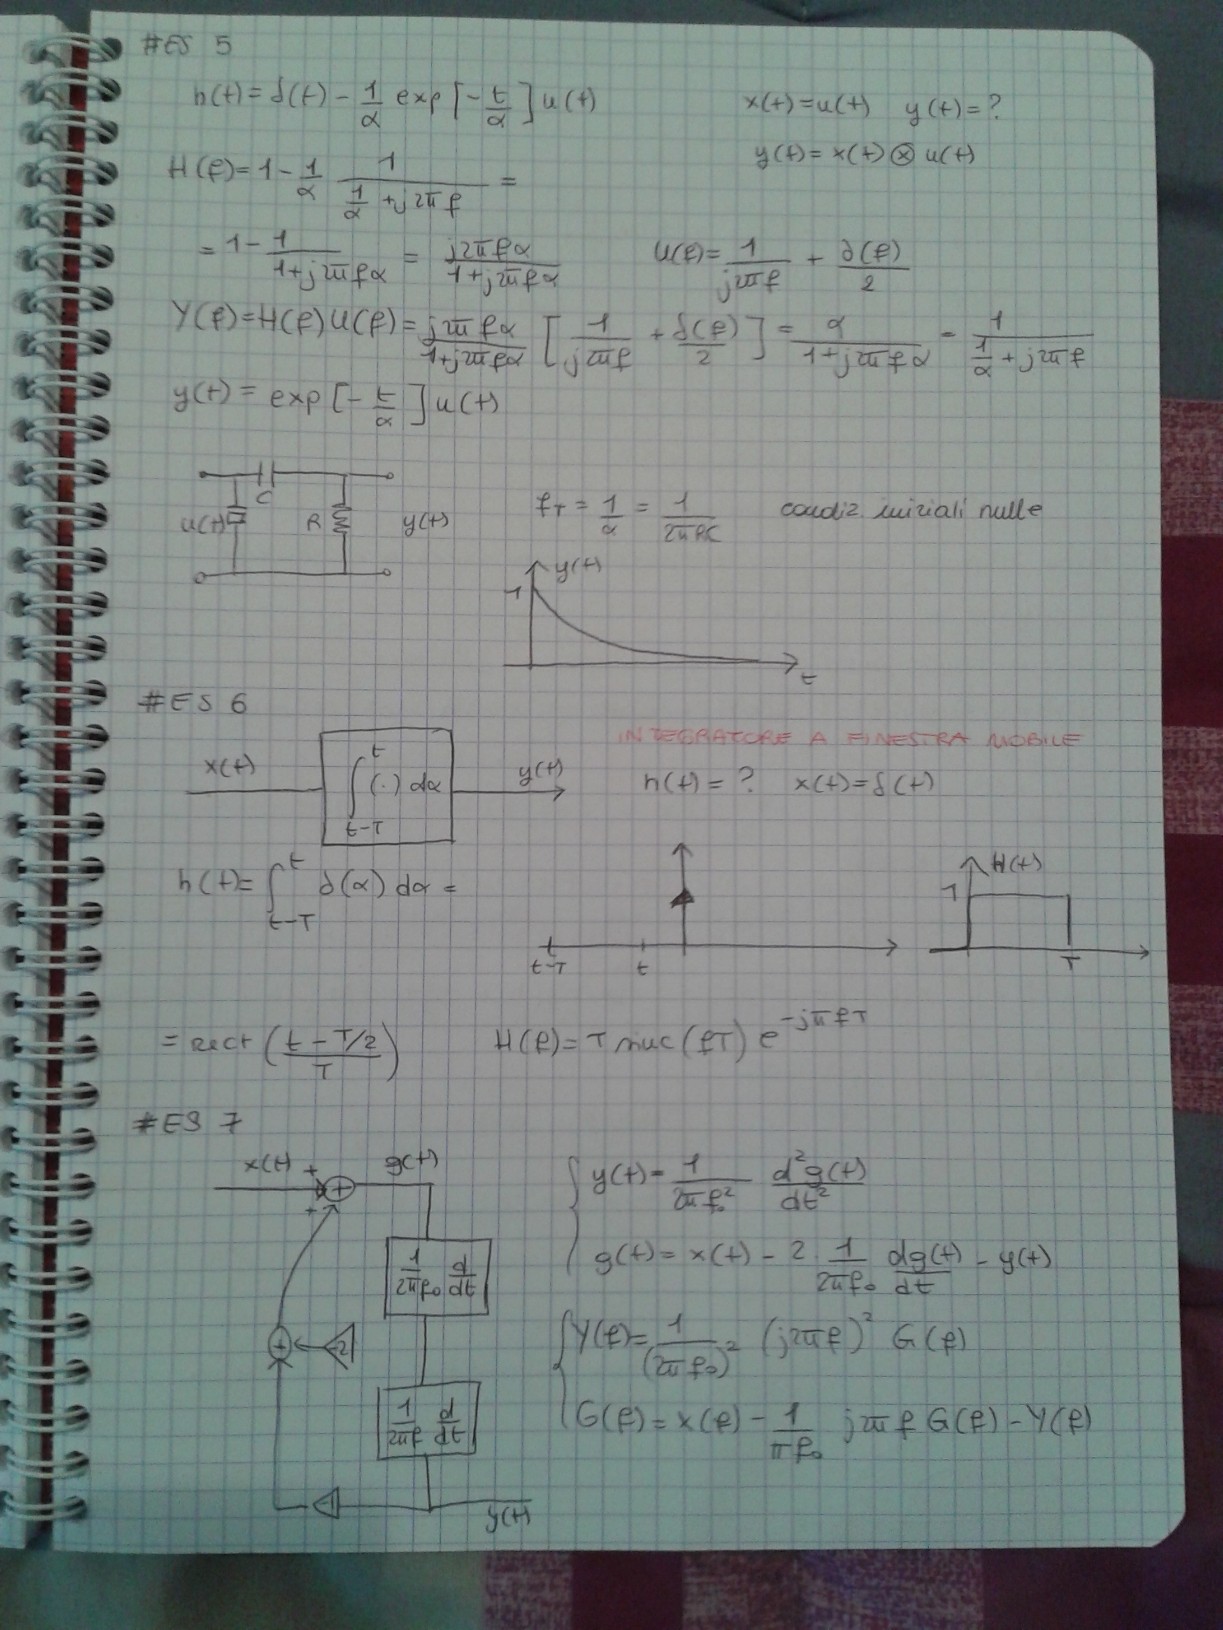 #ES 5
h(t) = δ(t) - 1/α exp[-t/α] u(t)    x(t) = u(t)  y(t) = ?
y(t) = x(t) ⊗ u(t)
H(f) = 1 - 1/α 1/(1/α + j2πf) =
= 1 - 1/(1+j2πfα) = j2πfα/(1+j2πfα)    U(f) = 1/(j2πf) + δ(f)/2
Y(f) = H(f) U(f) = j2πfα/(1+j2πfα) [1/(j2πf) + δ(f)/2] = α/(1+j2πfα) = 1/(1/α + j2πf)
y(t) = exp[-t/α] u(t)
C
u(t)  R  y(t)    fT = 1/α = 1/(2πRC)    condiz iniziali nulle
y(t)
1
t
#ES 6
INTEGRATORE A FINESTRA MOBILE
x(t)  ∫_{t-T}^{t} (·) dα  y(t)    h(t) = ?  x(t) = δ(t)
h(t) = ∫_{t-T}^{t} δ(α) dα =
t-T  t
H(t)
1
T
= rect((t - T/2)/T)    H(f) = T sinc(fT) e^{-jπfT}
#ES 7
x(t)  +  +  g(t)
+
1/(2πf₀) d/dt
+  -2
1/(2πf) d/dt
-1  y(t)
{ y(t) = 1/(2πf₀²) d²g(t)/dt²
g(t) = x(t) - 2 · 1/(2πf₀) dg(t)/dt - y(t)
{ Y(f) = 1/(2πf₀)² (j2πf)² G(f)
G(f) = X(f) - 1/(πf₀) j2πf G(f) - Y(f)